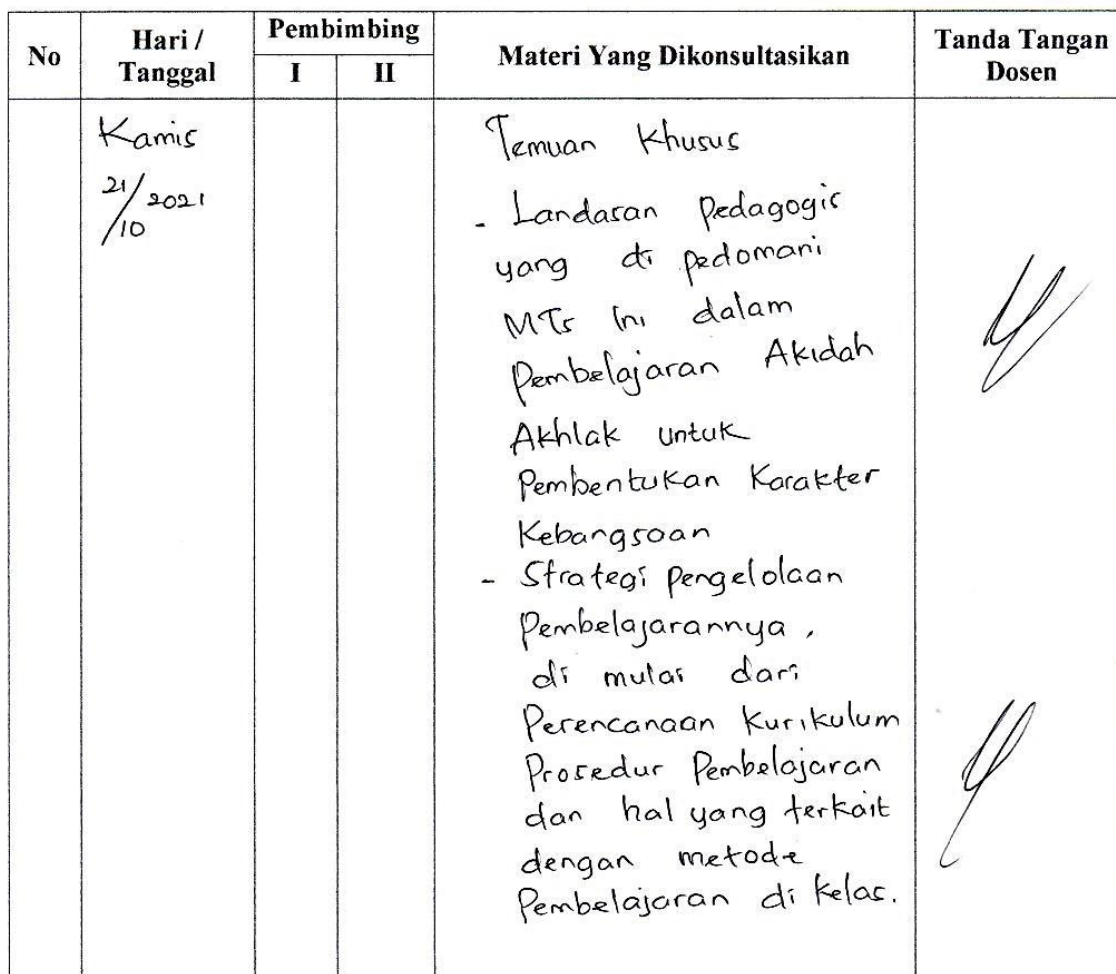 No
Hari /
Tanggal
Pembimbing
I
II
Materi Yang Dikonsultasikan
Tanda Tangan
Dosen
Kamis
21/10 2021
Temuan Khusus
- Landasan Pedagogis
yang di pedomani
MTs ini dalam
Pembelajaran Akidah
Akhlak untuk
Pembentukan Karakter
Kebangsaan
- Strategi Pengelolaan
Pembelajarannya,
di mulai dari
Perencanaan Kurikulum
Prosedur Pembelajaran
dan hal yang terkait
dengan metode
Pembelajaran di kelas.